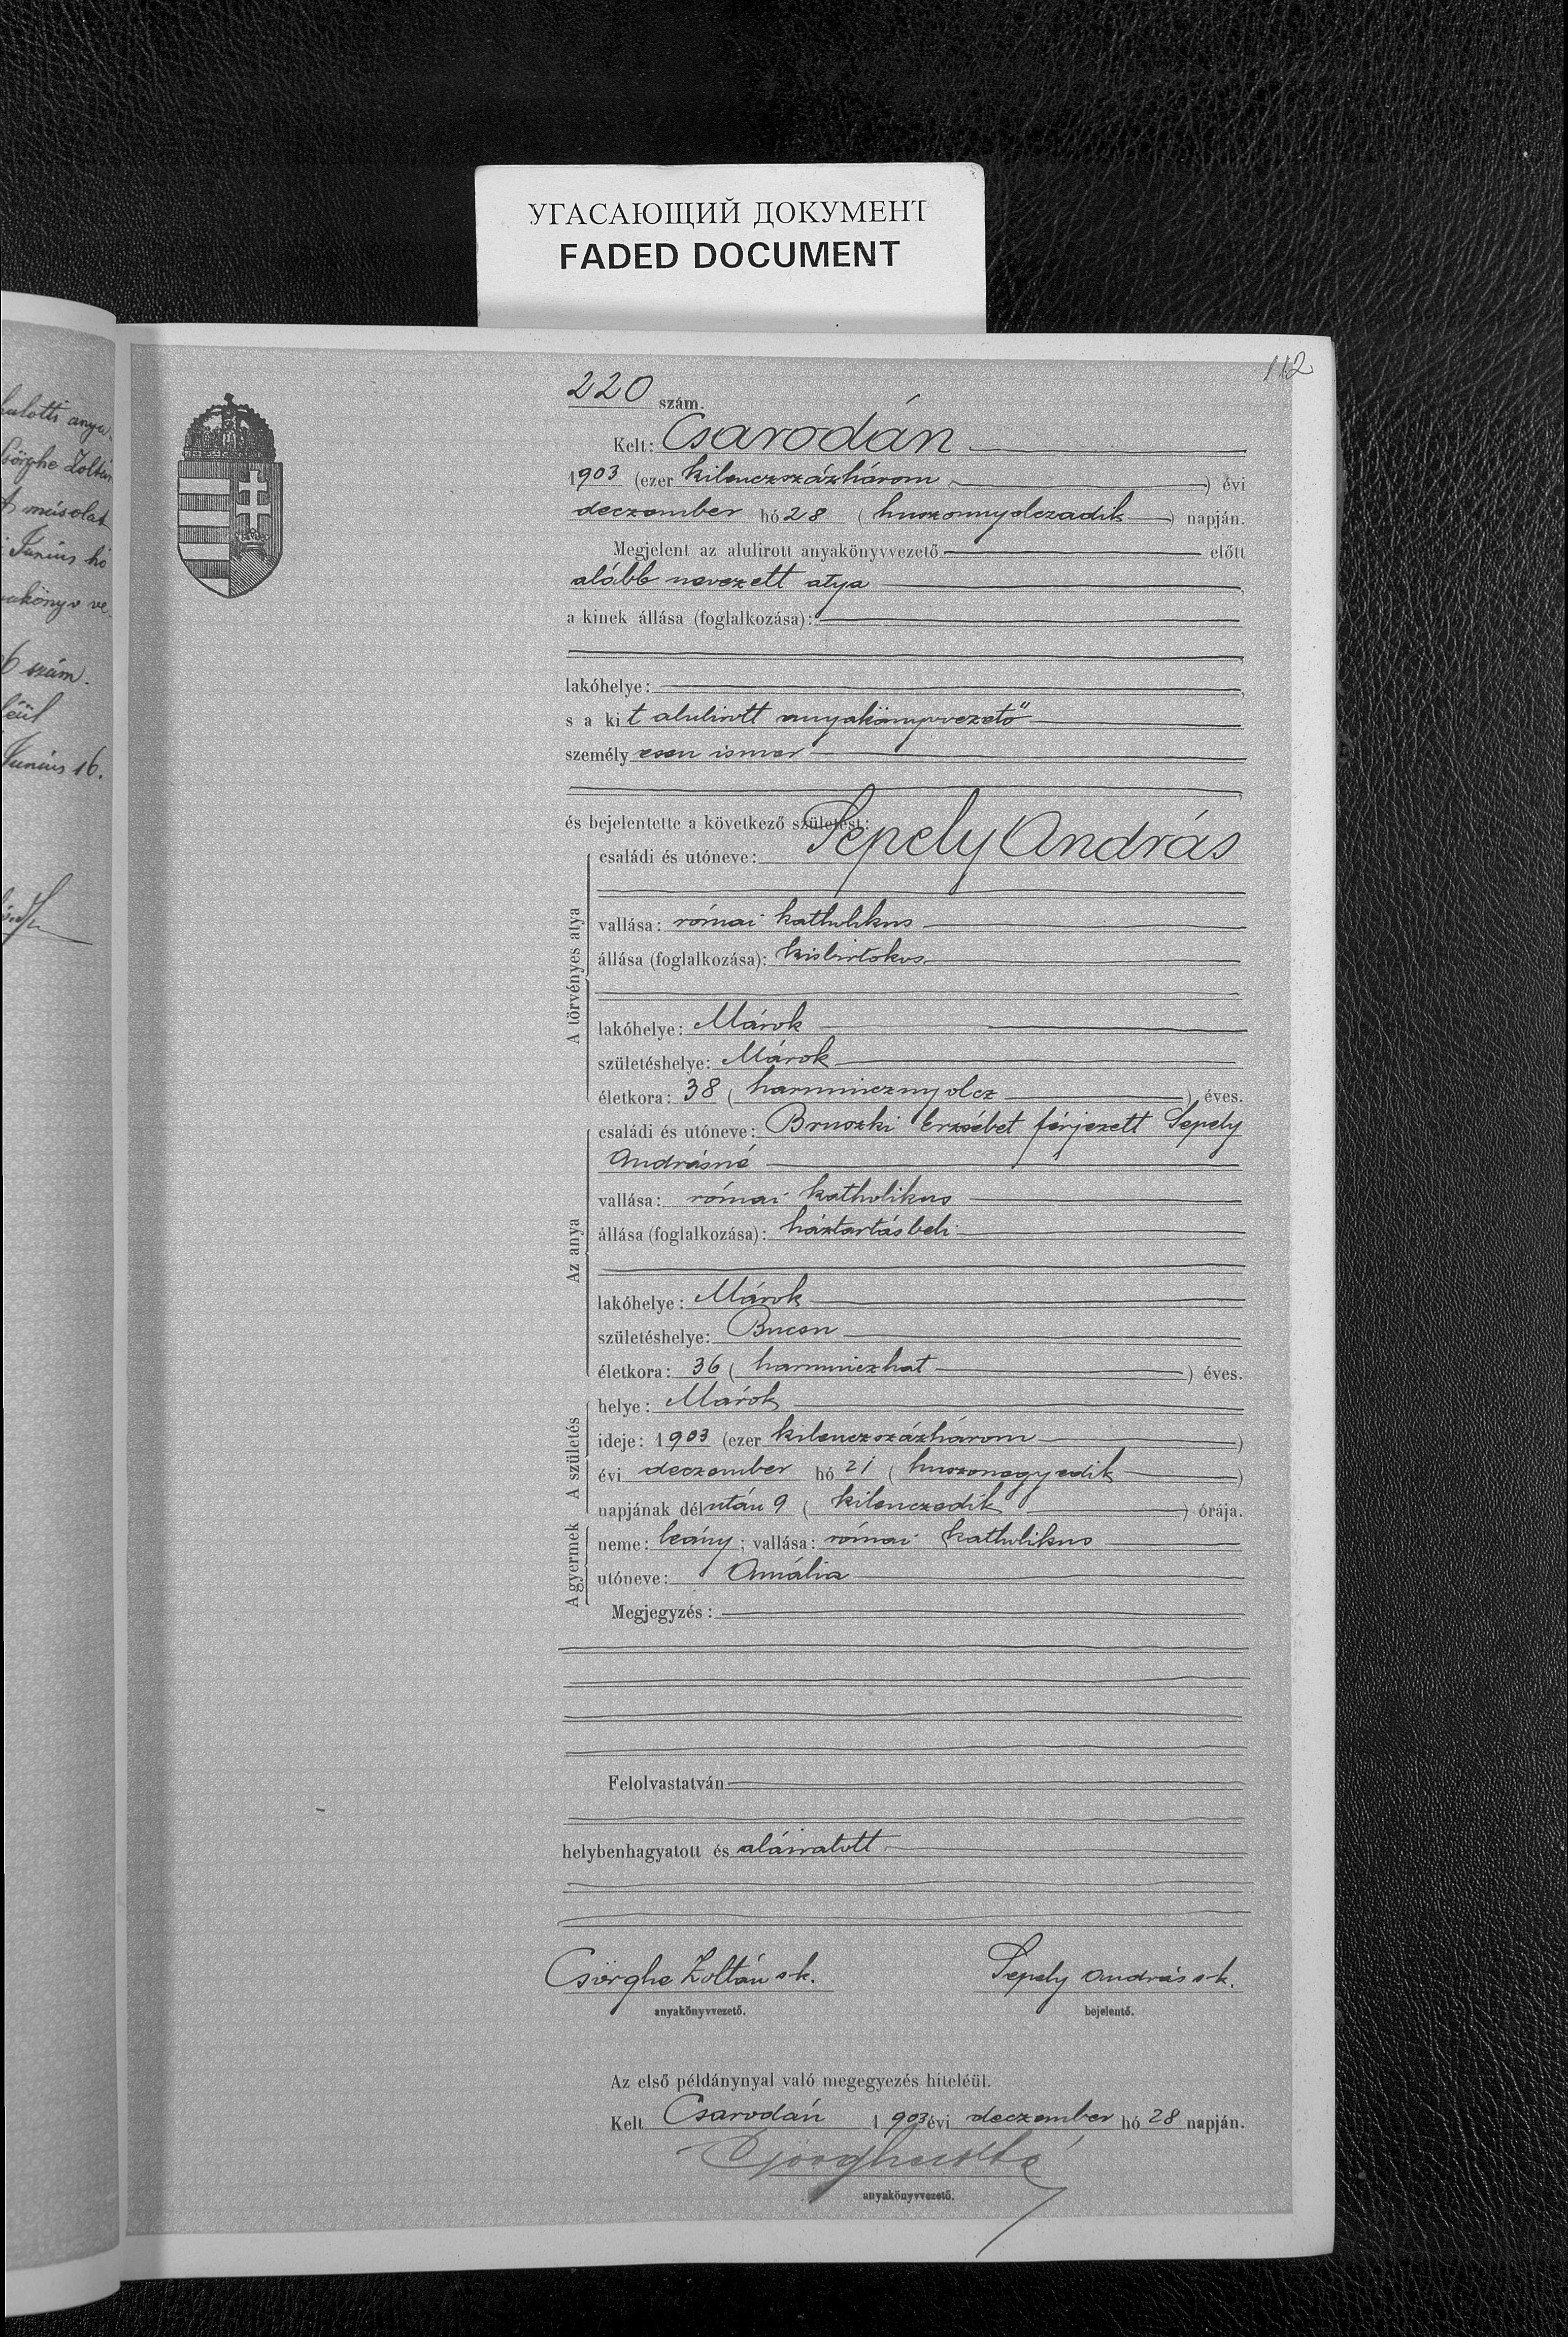 УГАСАЮЩИЙ ДОКУМЕНТ
FADED DOCUMENT
112
220 szám.
Kelt: Csarodán
1903 (ezer kilenczszázhárom) évi
deczember hó 28 (huszonnyolczadik) napján.
Megjelent az alulirott anyakönyvvezető előtt
alább nevezett atya,
a kinek állása (foglalkozása):
lakóhelye:
s a kit alulirott anyakönyvvezető
személyesen ismer
és bejelentette a következő születést:
A törvényes atya
családi és utóneve: Sepely András
vallása: római katholikus
állása (foglalkozása): kisbirtokos
lakóhelye: Márok
születéshelye: Márok
életkora: 38 (harmincznyolcz) éves.
Az anya
családi és utóneve: Bruszki Erzsébet férjezett Sepely
Andrásné
vallása: római katholikus
állása (foglalkozása): háztartásbeli
lakóhelye: Márok
születéshelye: Bucsu
életkora: 36 (harminczhat) éves.
A születés
helye: Márok
ideje: 1903 (ezer kilenczszázhárom)
évi deczember hó 21 (huszonegyedik)
napjának délután 9 (kilenczedik) órája.
A gyermek
neme: leány; vallása: római katholikus
utóneve: Amália
Megjegyzés:
Felolvastatván
helybenhagyatott és aláiratott.
Csörghe Zoltán s.k. Sepely András s.k.
anyakönyvvezető. bejelentő.
Az első példánynyal való megegyezés hiteléül.
Kelt Csarodán 1903 évi deczember hó 28 napján.
anyakönyvvezető.
anya
Csörghe Zoltán
A másolat
Június hó
6 szám.
Június 16.